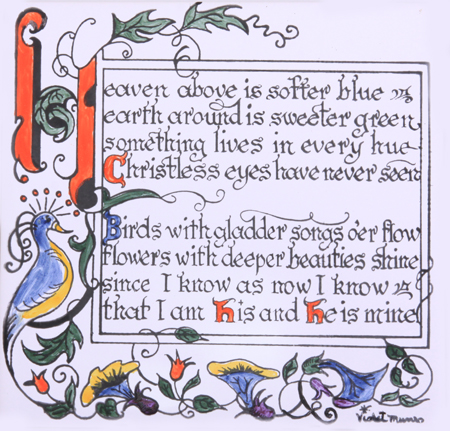 Heaven above is softer blue
earth around is sweeter green,
something lives in every hue
Christless eyes have never seen
Birds with gladder songs o'er flow
flowers with deeper beauties shine
since I know as now I know
that I am his and he is mine
Violet Munro